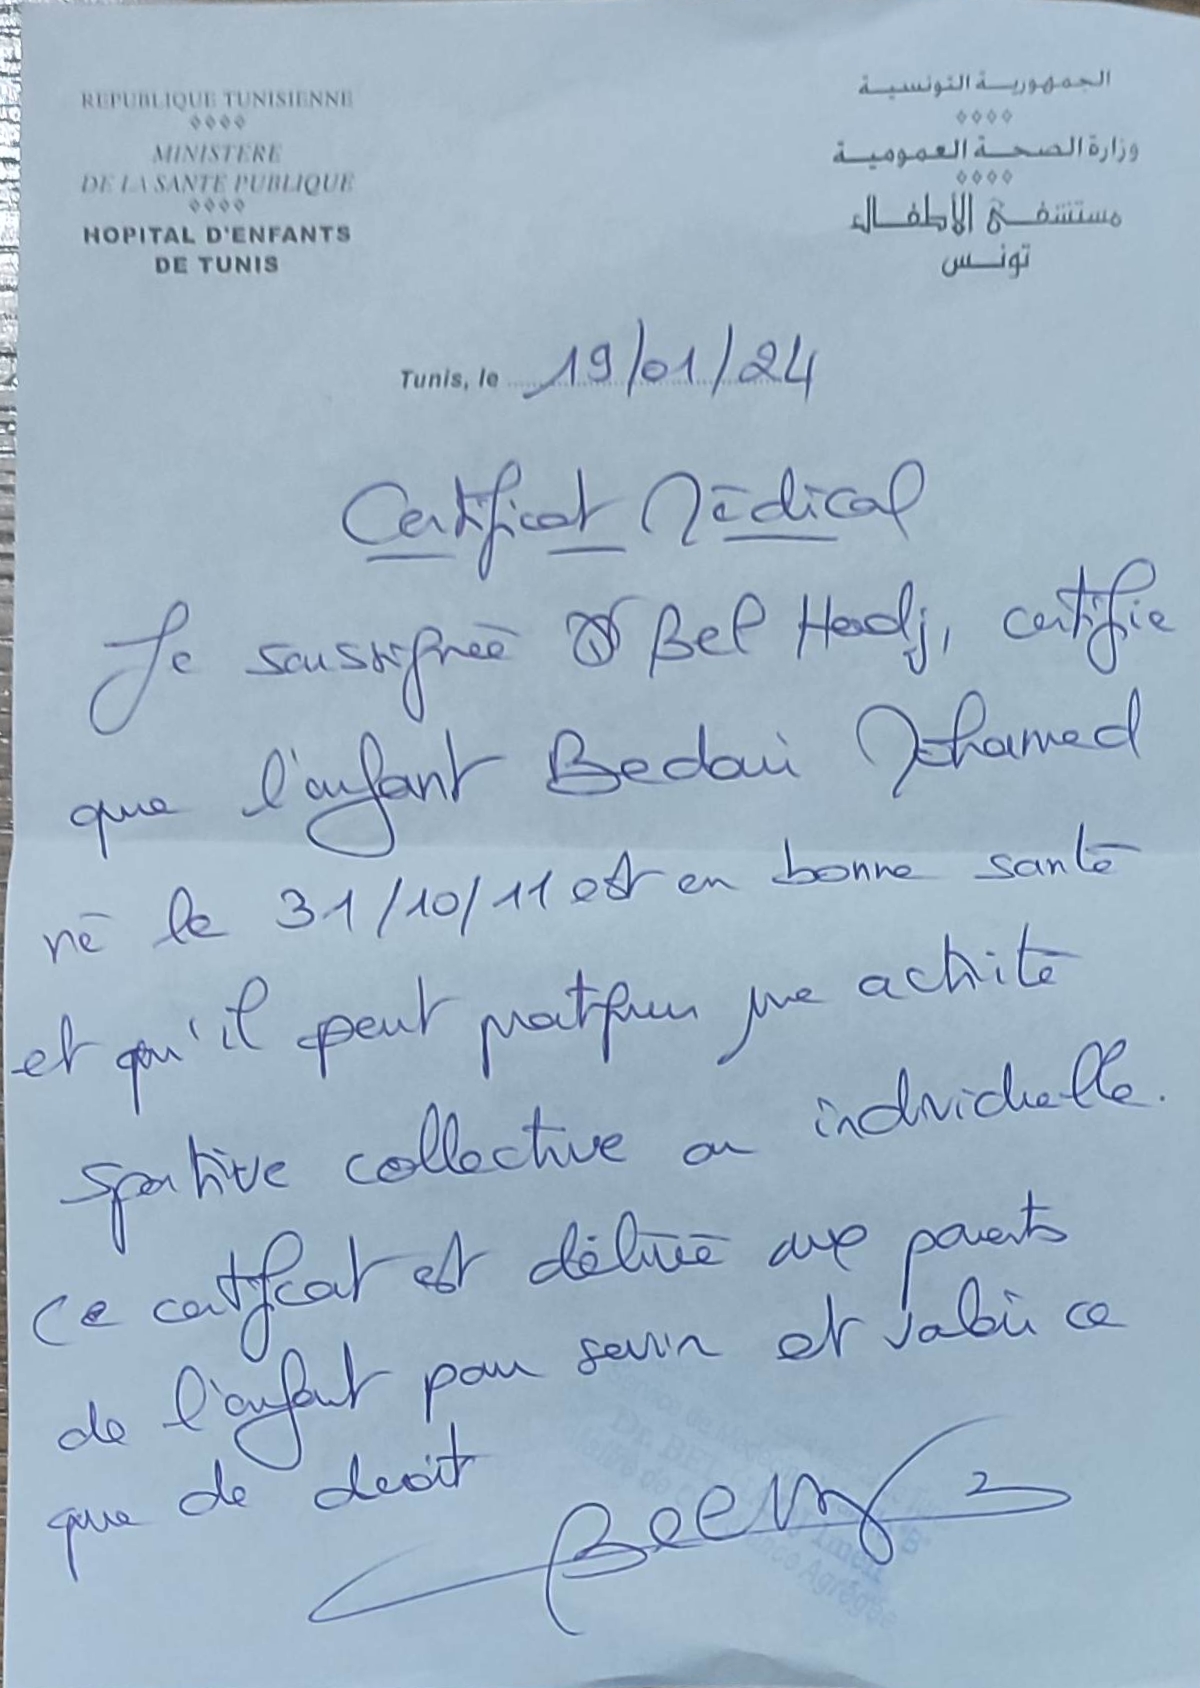 REPUBLIQUE TUNISIENNE
MINISTERE
DE LA SANTE PUBLIQUE
HOPITAL D'ENFANTS
DE TUNIS
الجمهورية التونسية
وزارة الصحة العمومية
مستشفى الأطفال
تونس
Tunis, le 19/01/24
Certificat Médical
Je soussignée Dr Bel Hadj, certifie
que l'enfant Bedoui Mohamed
né le 31/10/11 est en bonne santé
et qu'il peut pratiquer une activité
sportive collective ou individuelle.
Ce certificat est délivré aux parents
de l'enfant pour servir et valoir ce
que de droit
Service de Médecine
Dr. BEL Imen
"B"
Agrégée